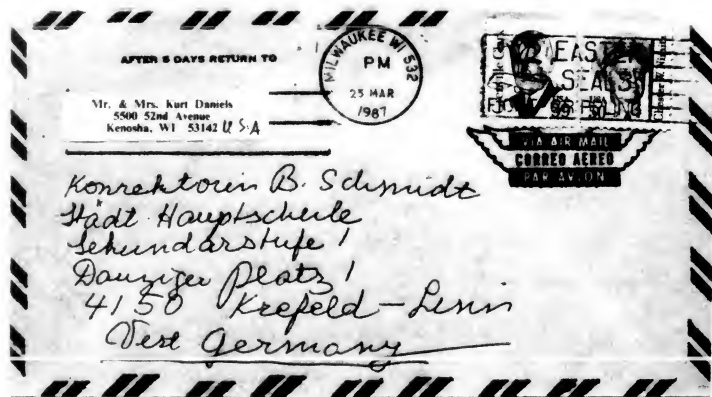 AFTER 5 DAYS RETURN TO
Mr. & Mrs. Kurt Daniels
5500 52nd Avenue
Kenosha, WI 53142 U.S.A
MILWAUKEE WI 532
PM
23 MAR
1987
EASTER
SEALS
VIA AIR MAIL
CORREO AEREO
PAR AVION
Konrektorin B. Schmidt
Städt. Hauptschule
Sekundarstufe 1
Danziger Platz 1
4150 Krefeld - Linn
West Germany